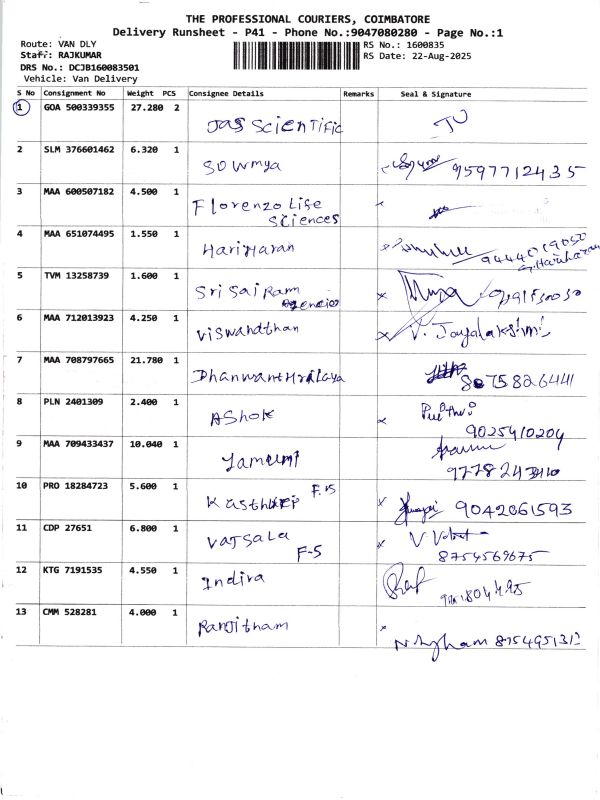 THE PROFESSIONAL COURIERS, COIMBATORE
Delivery Runsheet - P41 - Phone No.:9047080280 - Page No.:1
Route: VAN DLY
RS No.: 1600835
Staff: RAJKUMAR
RS Date: 22-Aug-2025
DRS No.: DCJB160083501
Vehicle: Van Delivery
S No Consignment No Weight PCS Consignee Details Remarks Seal & Signature
1 GOA 500339355 27.280 2 Jas Scientific
2 SLM 376601462 6.320 1 Sowmya 9597712435
3 MAA 600507182 4.500 1 Florenzo Life
Sciences
4 MAA 651074495 1.550 1 Hariharan 9444019050
G. Hariharan
5 TVM 13258739 1.600 1 Sri Sai Ram
Agencies
6 MAA 712013923 4.250 1 Viswandthan V. Jayalakshmi
7 MAA 708797665 21.780 1 Dhanwanthralaya 8075826441
8 PLN 2401309 2.400 1 Ashok
9025410204
9 MAA 709433437 10.040 1 Yamuni
10 PRO 18284723 5.600 1 F-15 9042661593
11 CDP 27651 6.800 1 Vatsala F-5
8754569675
12 KTG 7191535 4.550 1 Indira
13 CMM 528281 4.000 1 Ranjitham